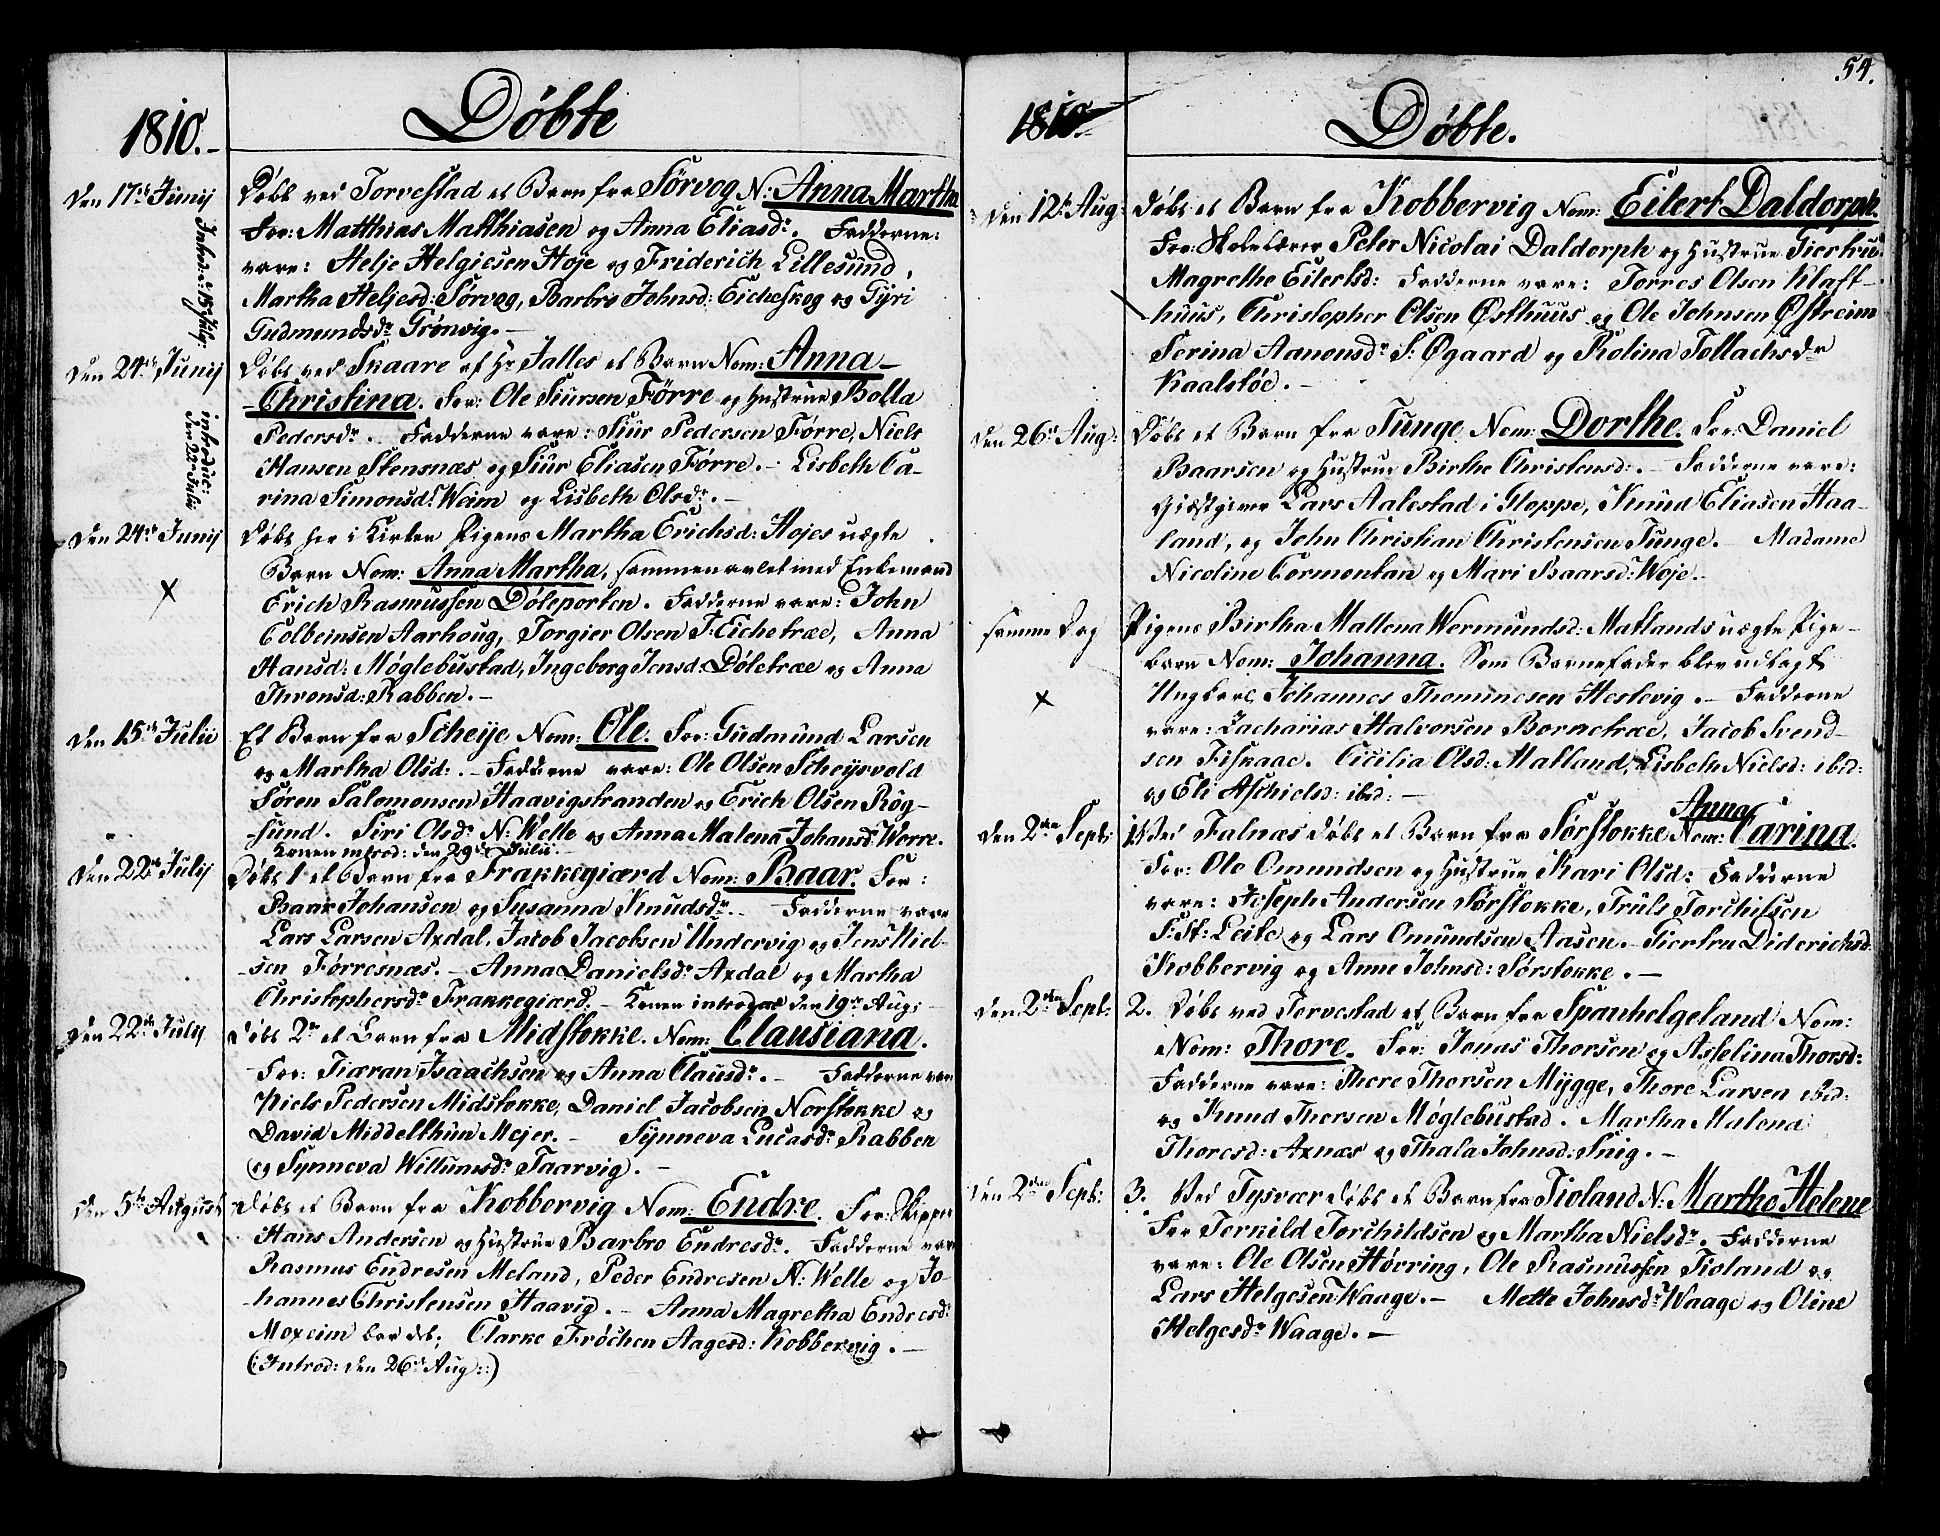 1810.
Döbte
Den 17de Junij
Döbt ved Torvestad et Barn fra Sörvog N: Anna Martha
For: Matthias Matthiasen og Anna Eliasdr. Fadderne
vare: Helje Helgiesen Höje og Friderich Lillesund,
Martha Heljesd: Sörvog, Barbro Johnsd: Eicheskog og Gÿri
Gudmundsdr Grönvig.
Introd: d: 15de Julÿ.
Den 24de Junij
Döbt ved Skaare af Hr Salles et Barn Nom: Anna
Christina. For: Ole Siursen Förre og Hustrue Bolla
Pedersdr. Fadderne vare: Siur Pedersen Förre, Niels
Hansen Stensnæs og Siur Eliasen Förre. Lisbeth Ca-
rina Simonsdr Weim og Lisbeth Olsdr.
introduc: den 22de Julii
Den 24de Junij
Döbt her i Kirken Pigens Martha Erichsd: Hojes uægte
Barn Nom: Anna Martha, sammenavlet med Enkemand
Erich Rasmussen Döleporten. Fadderne vare: John
Colbeinsen Aarhoug, Torgier Olsen S: Eichetræe, Anna
Hansd: Möglebustad, Ingeborg Jensd: Döletræe og Anna
Thronsd: Rabben.
Den 15de Julii
Et Barn fra Scheije Nom: Ole. For: Gudmund Larsen
og Martha Olsd: Fadderne vare: Ole Olsen Scheijsvold
Sören Salomonsen Haavigstranden og Erich Olsen Rög-
sund. Siri Olsdr N: Welle og Anna Malena Johansdr Worre.
Konen introd: den 29de Julii.
Den 22de Julij
Döbt 1. et Barn fra Frakkegiærd Nom: Baar. For:
Baar Johansen og Susanna Knudsdr. Fadderne vare
Lars Larsen Axdal, Jacob Jacobsen Undervig og Jens Niel-
sen Förresnæs. Anna Danielsdr Axdal og Martha
Christophersdr Frakkegiærd. Konen introd den 19de Aug:
Den 22de Julÿ
Döbt 2. et Barn fra Midstokke. Nom: Clausiana.
For: Tiæran Isaachsen og Anna Clausdr. Fadderne vare
Niels Pedersen Midstokke, Daniel Jacobsen Norstokke og
David Middelthun Mejer. Sÿnneva Lucasdr Rabben
og Sÿnneva Willumsdr Taarvig.
Den 5te August
Döbt et Barn fra Kobbervig Nom: Endre. For: Skipper
Hans Andersen og Hustrue Barbro Endresdr. Fadderne vare
Rasmus Endresen Meland, Peder Endresen N: Welle og Jo-
hannes Christensen Haavig. Anna Magretha Endresdr
Moxeim bar det; Clarke Fröchen Aagesd: Kobbervig.
(Introd: den 26de Aug:)
54.
1810.
Döbte.
Den 12te Aug:
Döbt et Barn fra Kobbervig Nom: Eilert Daldorph.
For: Skolelærer Peter Nicolai Daldorph og Hustrue Giertrue
Magrethe Eilertsd: Fadderne vare: Torres Olsen Klaft-
huus, Christopher Olsen Östhuus og Ole Johnsen Östreim
Serina Aanonsdr S: Øgaard og Rolina Tollachsdr
Kaalstöe.
Den 26de Aug:
Döbt et Barn fra Tunge. Nom: Dorthe. For: Daniel
Baarsen og Hustrue Birthe Christensd: Fadderne vare:
Giæstgiver Lars Aalestad i Gloppe, Knud Eliasen Haa-
land, og John Christian Christensen Tunge. Madame
Nicoline Cormontan og Mari Baarsd: Woje.
samme Dag
Pigens Birtha Mallena Wermundsd: Matlands uægte Pige-
barn Nom: Johanna. Som Barnefader blev udlagt
Ungkarl Johannes Thommesen Hestevig. Fadderne
vare: Zacharias Halvorsen Bornetræe, Jacob Svend-
sen Fiskaae. Cicilia Olsd: Matland, Lisbeth Nielsd: ibid:
og Eli Aschielsd: ibid:
Den 2den Sept:
1. Ved Falnæs döbt et Barn fra Sörstokke Nom: Anna Carina.
For: Ole Omundsen og Hustrue Kari Olsd: Fadderne
vare: Joseph Andersen Sörstokke, Truls Torchilsen
S: St: Leite og Lars Omundsen Aasen. Giertru Diderichsd:
Kobbervig og Anne Johnsd: Sörstokke.
Den 2den Sept:
2. Döbt ved Torvestad et Barn fra Spanhelgeland Nom:
Nom: Thore. For: Jonas Thorsen og Asselina Thorsd:
Fadderne vare: Thore Thorsen Mÿgge, Thore Larsen ibid:
og Knud Thorsen Möglebustad. Martha Malena
Thoresd: Axnæs og Thala Johnsd: Snig.
Den 2den Sept:
3. Ved Tysvær döbt et Barn fra Tioland N: Martha Helene
For Terkild Torchildsen og Martha Nielsdr. Fadderne
vare: Ole Olsen Hörring, Ole Rasmussen Tioland og
Lars Helgesen Waage. Mette Johnsdr Waage og Oline
Helgesdr Waage.